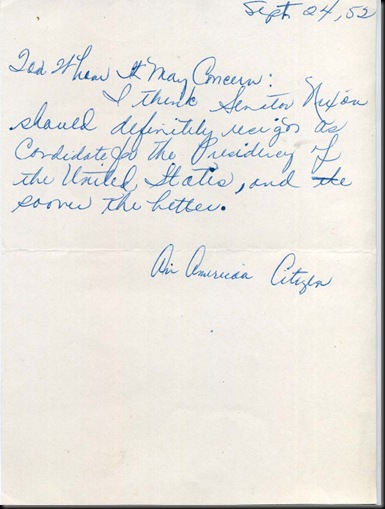 Sept. 24, 52
Too Whom It May Concern:
I think Senator Nixon
should definitely resign as
Candidate for the Presidency of
the United States, and the
sooner the better.
An American Citizen